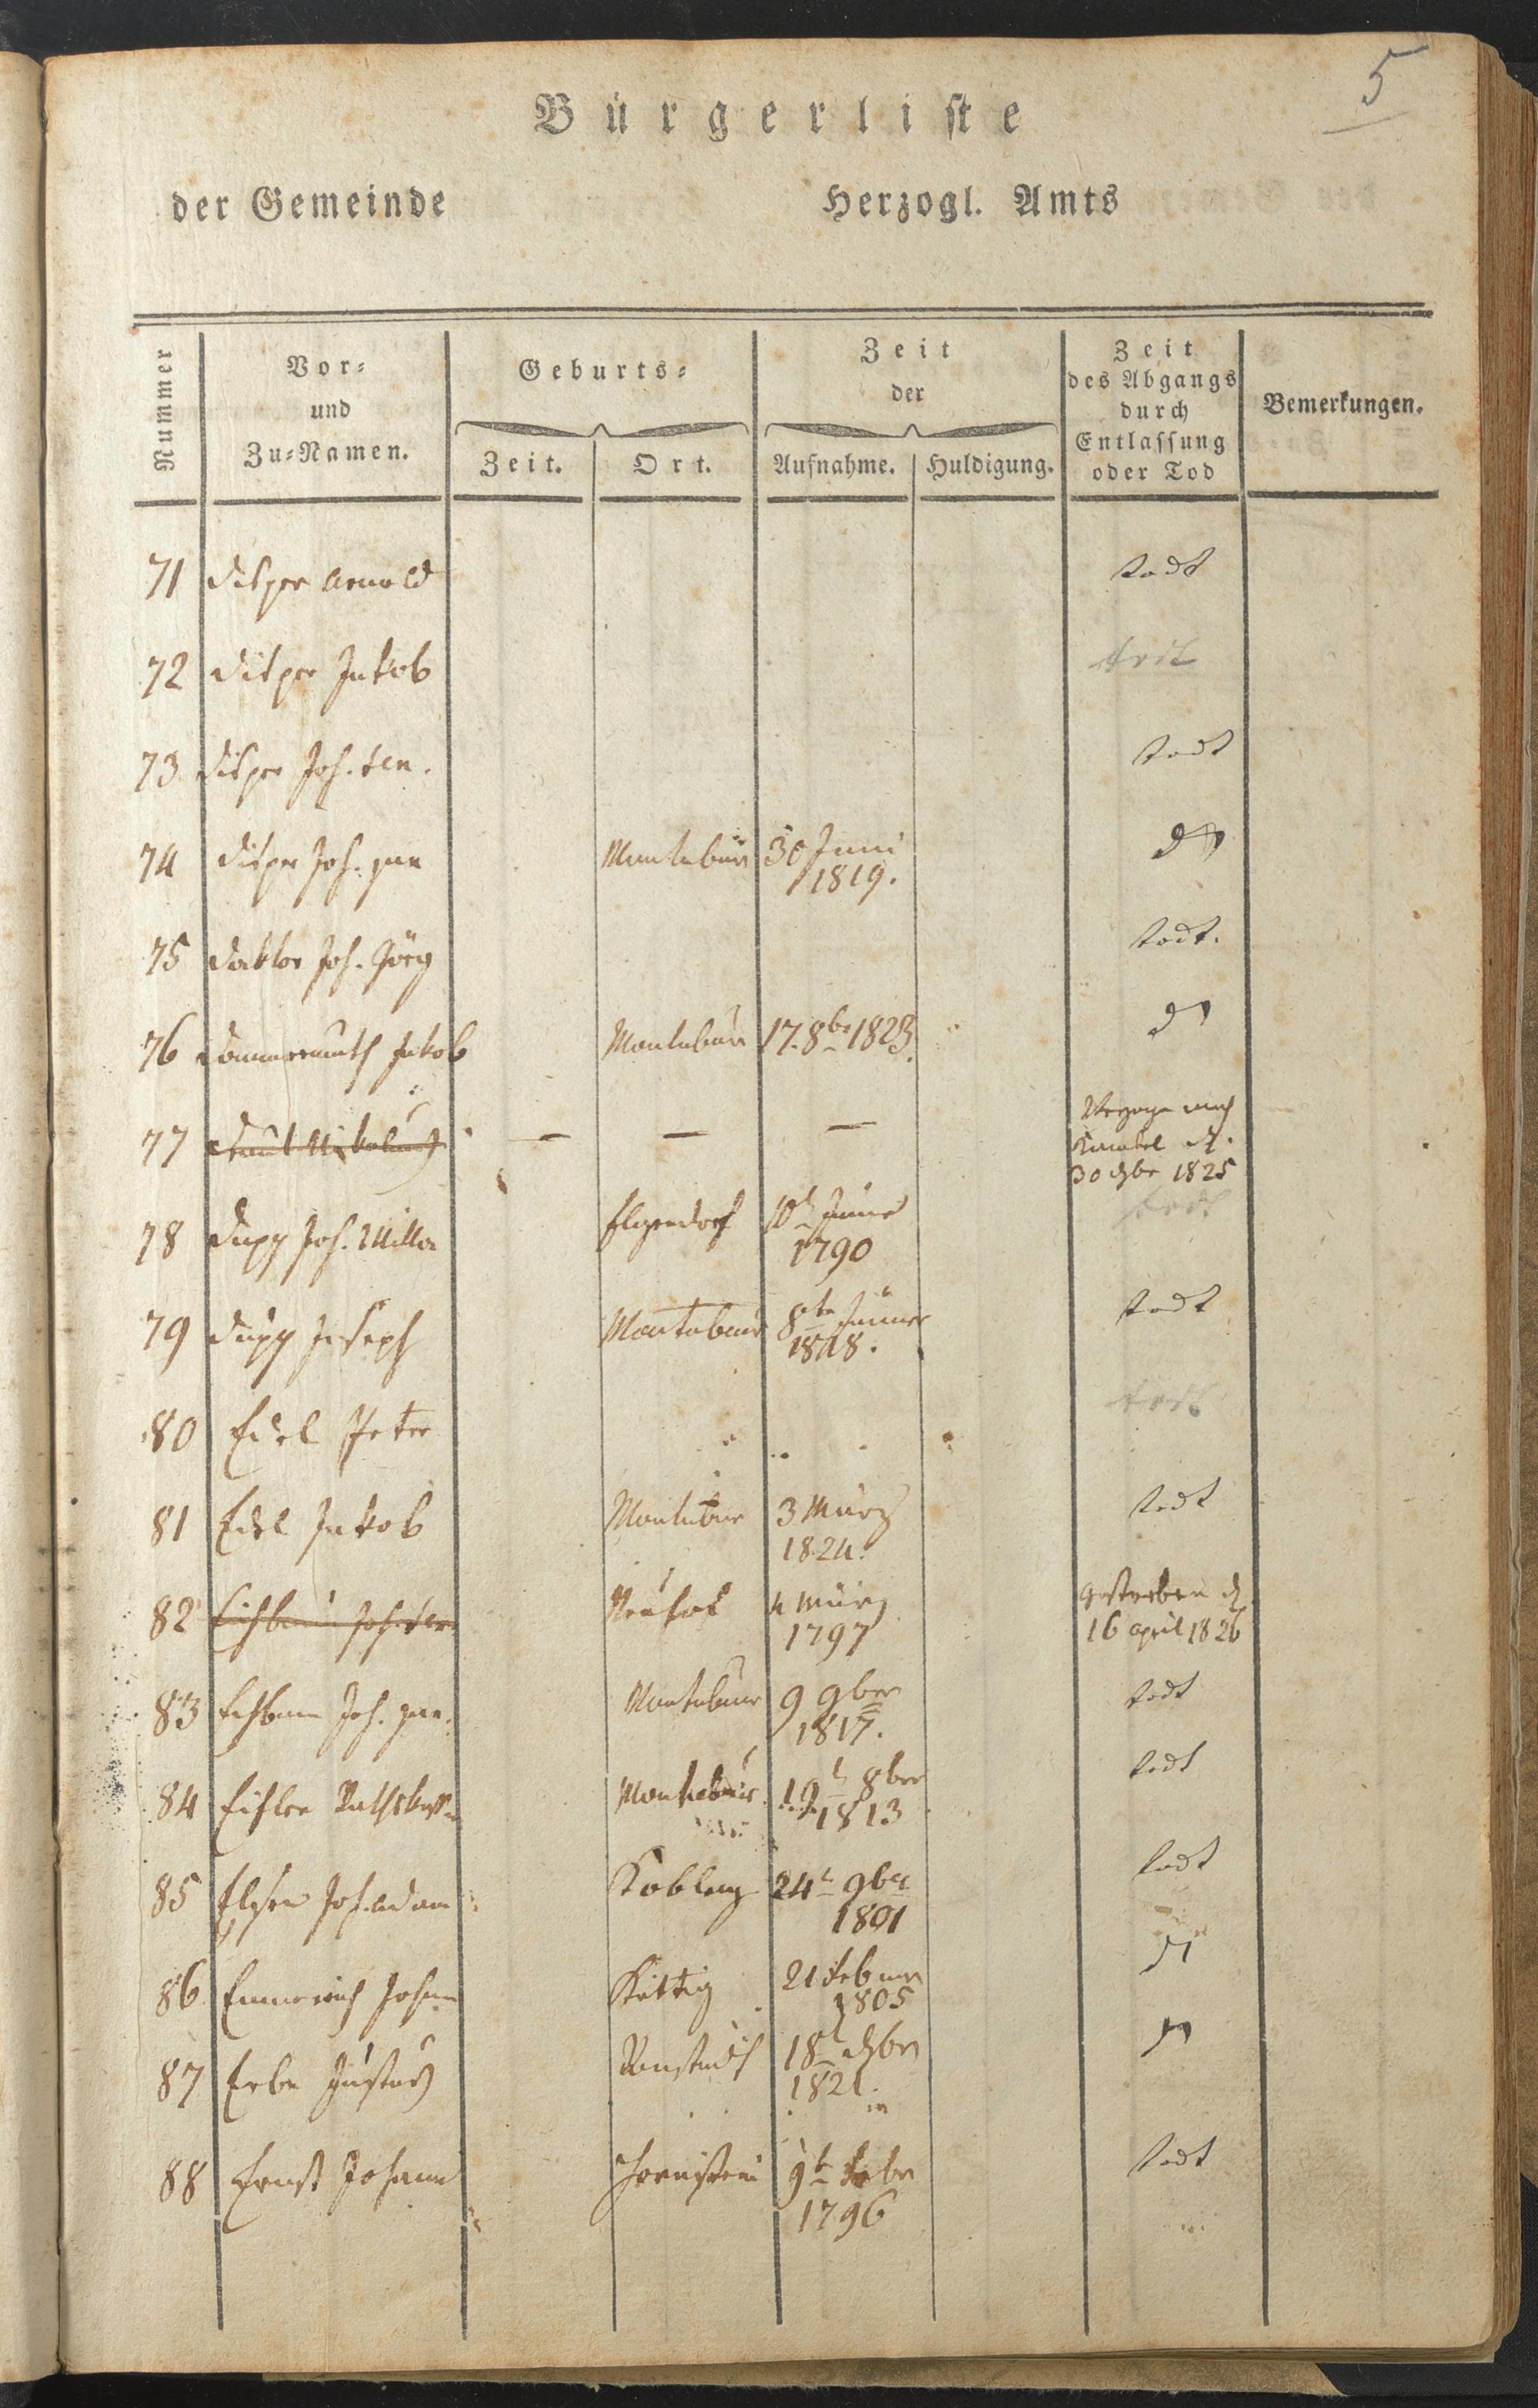 5
Bürgerliste
der Gemeinde Herzogl. Amts
Nummer
Vor- und Zu-Namen.
Geburts-
Zeit. Ort.
Zeit der
Aufnahme. Huldigung.
Zeit des Abgangs durch Entlassung oder Tod
Bemerkungen.
71 Disper Arnold todt
72 Disper Jakob todt
73 Disper Joh. sen. todt
74 Disper Joh. jun Montabaur 30 Juni 1819.
75 Joh. Görg todt.
76 Dommermuth Jakob Montabaur 17. 8br 1823.
77 — — — nach 30 Xbr 1825
78 Dupp Joh. Elgendorf 10t 1790 todt
79 Dupp Joseph Montabaur 8te Jänner 1818. todt
80 Edel Peter todt
81 Edel Jakob Montabaur 3 März 1824. todt
82 Joh. sen Neuhof 4 März 1797 gestorben d. 16 april 1826
83 Joh. jun. Montabaur 9 9ber 1817. todt
84 Montabaur 19t 8ber 1813 todt
85 Joh. Adam Koblenz 24t 9ber 1801 todt
86 Emmerich Johann Kettig 21 Februar 1805
87 Erbe 18t Xbr 1821.
88 Ernst Johann 9t 1796 todt